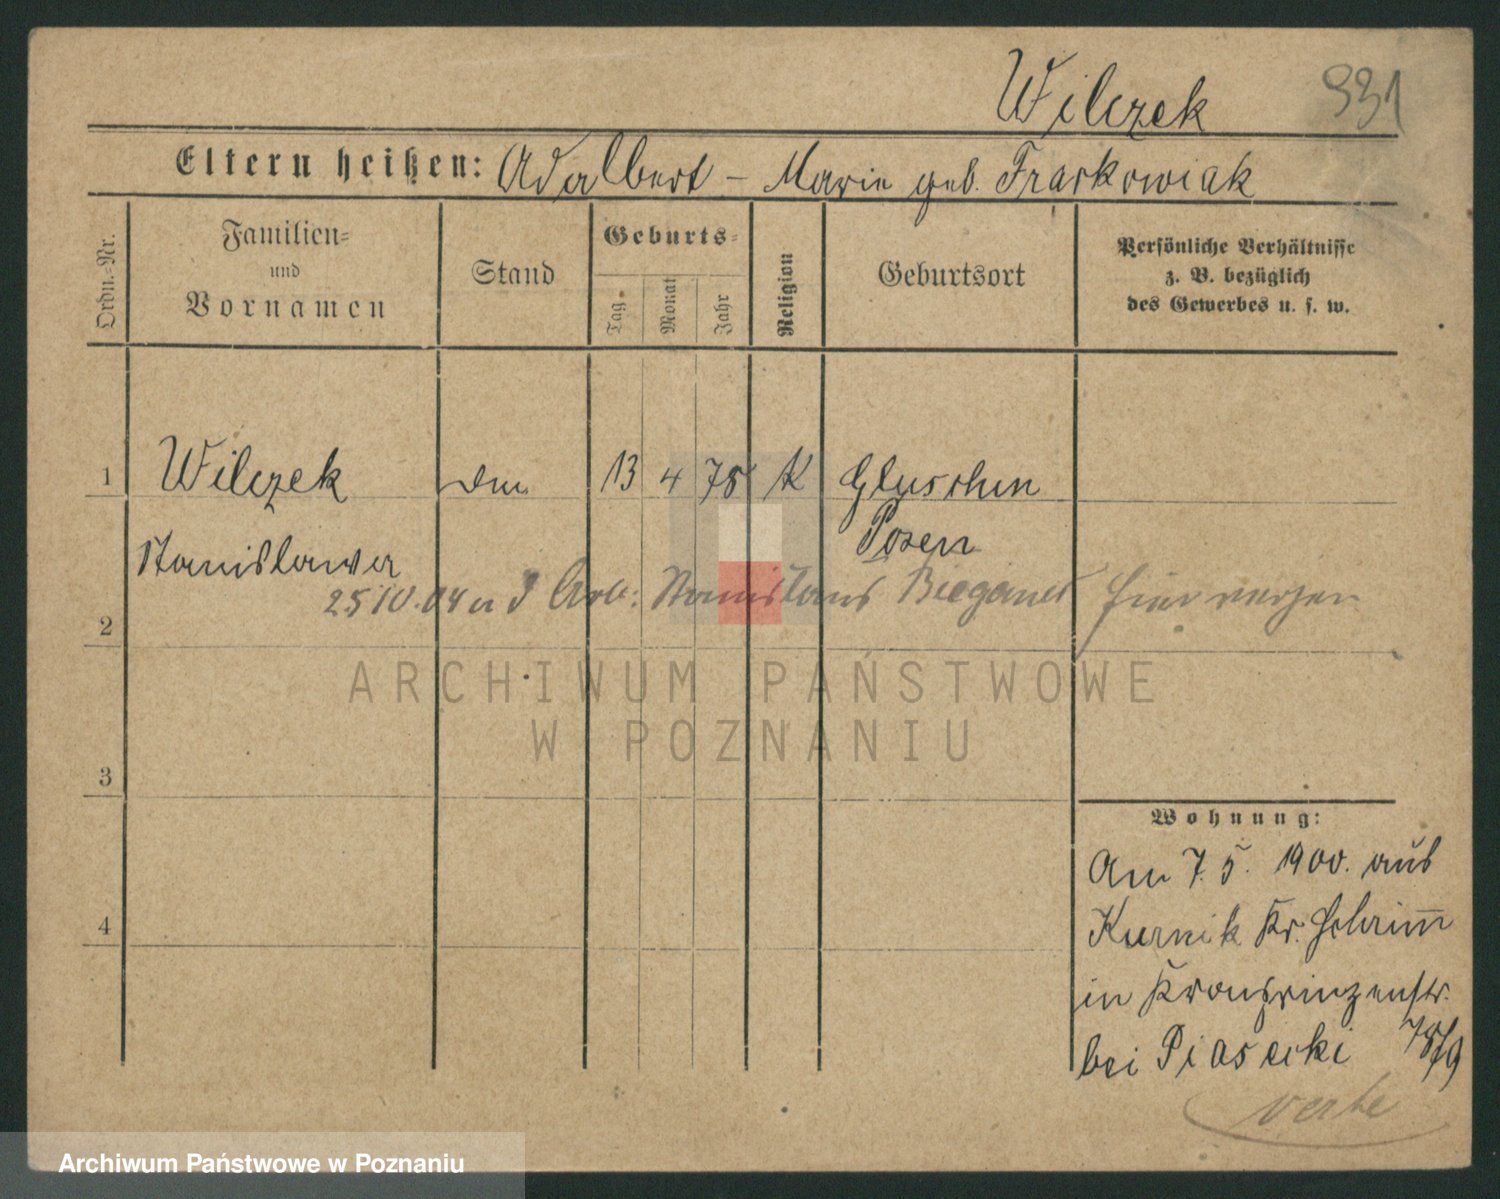 Wilczek 931
Eltern heißen: Adalbert – Marie geb. Frackowiak
Ordn.-Nr.
Familien-
und
Vornamen
Stand
Geburts-
Tag
Monat
Jahr
Religion
Geburtsort
Persönliche Verhältnisse
z. B. bezüglich
des Gewerbes u. s. w.
1 Wilczek 13 4 78 K Gluschin
Posen
Stanislawa
25 10. 04 Arb: Stanislaus hier verzen
2
ARCHIWUM PAŃSTWOWE
W POZNANIU
3
Wohnung:
Am 7. 5. 1900. aus
4
Kurnik Kr. Schrimm
in Kronprinzenstr.
bei Piasecki 78/9
verte
Archiwum Państwowe w Poznaniu